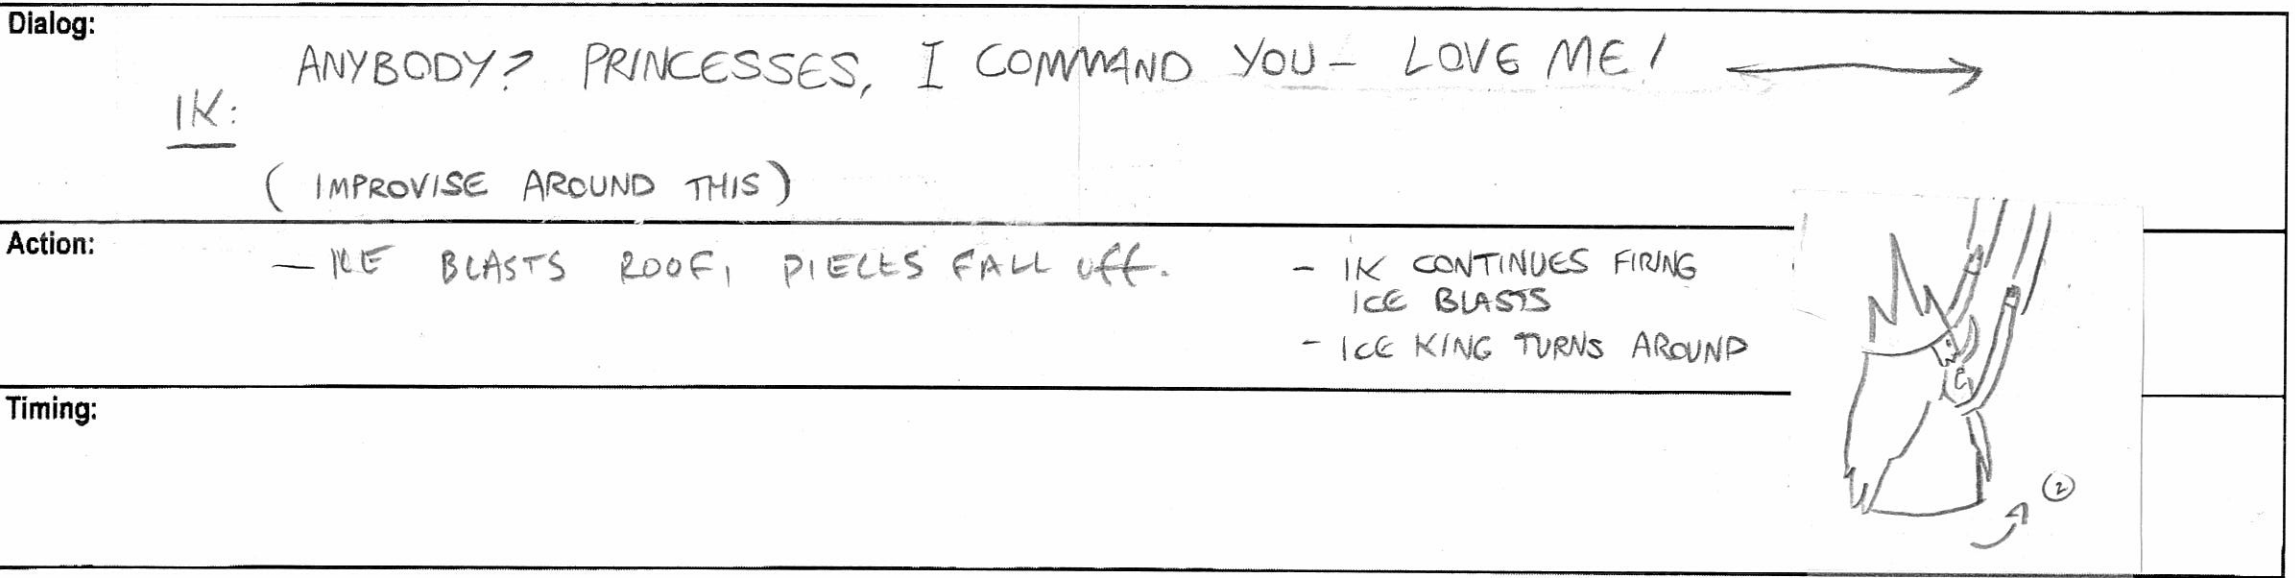 Dialog:
ANYBODY? PRINCESSES, I COMMAND YOU - LOVE ME!
IK:
(IMPROVISE AROUND THIS)
Action:
- ICE BLASTS ROOF, PIECES FALL off.
- IK CONTINUES FIRING
ICE BLASTS
- ICE KING TURNS AROUND
Timing:
2